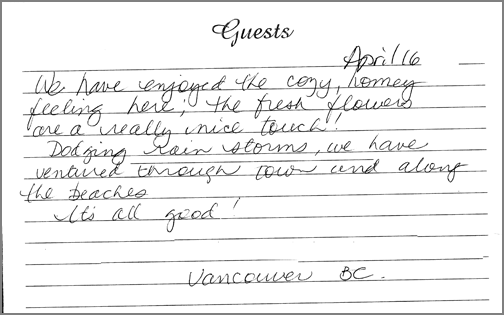 Guests
April 16
We have enjoyed the cozy, homey
feeling here; the fresh flowers
are a really nice touch!
Dodging rain storms, we have
ventured through town and along
the beaches
It's all good!
Vancouver BC.